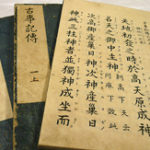 天地初發之時於高天原成神
名天之御中主神
訓高下天云
阿麻下效此
次高御產巢日神次神產巢日
神此三柱神者並獨神成坐而
古事記傳
一上